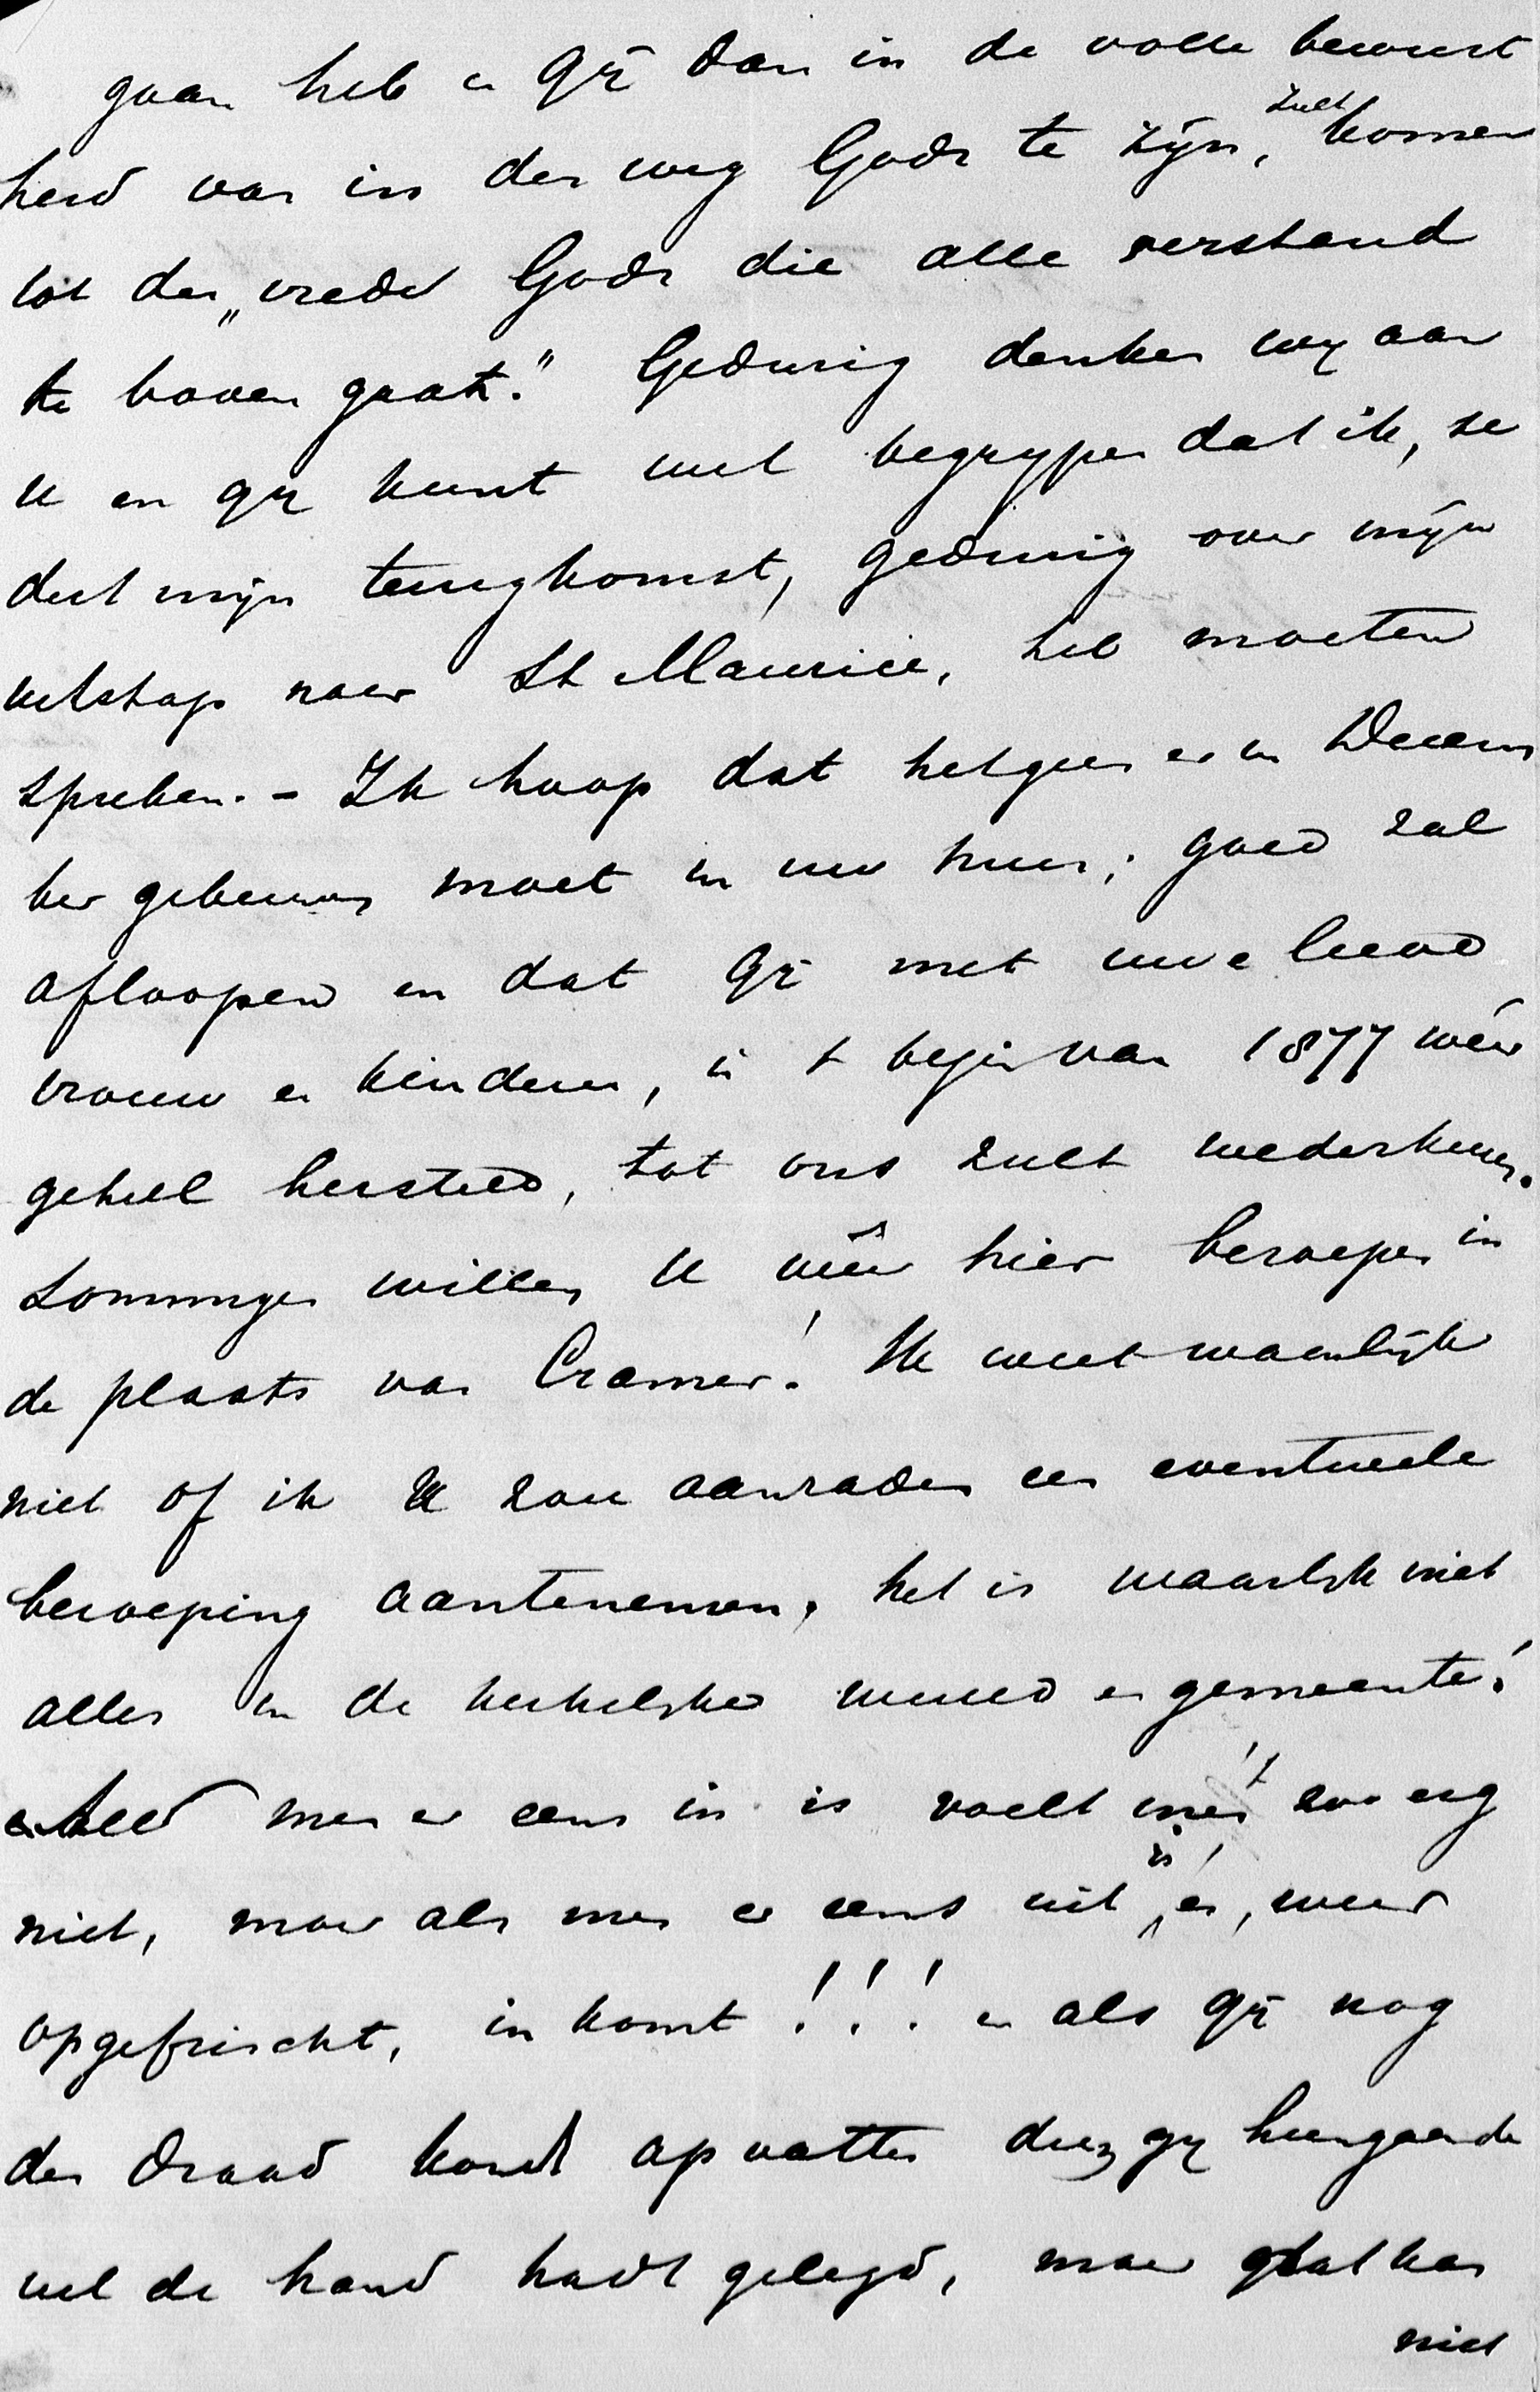 gaan heb en Gij dan in de volle bewust
heid van in den weg Gods te zijn, zult komen
tot den „vrede Gods die alle verstand
te boven gaat." Gedurig denken wij aan
U en gij kunt wel begrijpen dat ik, se
dert mijn terugkomst, gedurig over mijn
uitstap naar St Maurice, heb moeten
spreken. - Ik hoop dat hetgeen er in Decem
ber gebeuren moet in uw huis, goed zal
afloopen en dat Gij met uwe lieve
vrouw en kinderen, in 't begin van 1877 wéér
geheel hersteld, tot ons zult wederkeeren.
Sommigen willen U wéér hier beroepen in
de plaats van Cramer! Ik weet waarlijk
niet of ik U zou aanraden een eventueele
beroeping aantenemen, het is waarlijk niet
alles in de kerkelijke wereld en gemeente!
men er eens in is voelt men 't zoo erg
niet, maar als men er eens uit is en, weer
opgefrischt, in komt!!! en als gij nog
den draad kondt opvatten dien gij heengaande
uit de hand hadt gelegd, maar dat kan
niet